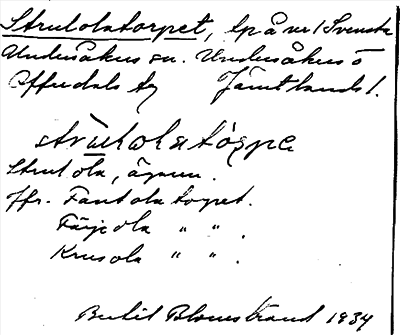 Strutolatorpet, lp å nr 1 Svensta
Undersåkers sn. Undersåkers o
Offerdals tg Jämtlands l.
strùtolatórpe
Strutola, ägaren.
Jfr. Fantolatorpet.
Färjeola " " .
Krusola " " .
Bertil Blomstrand 1934